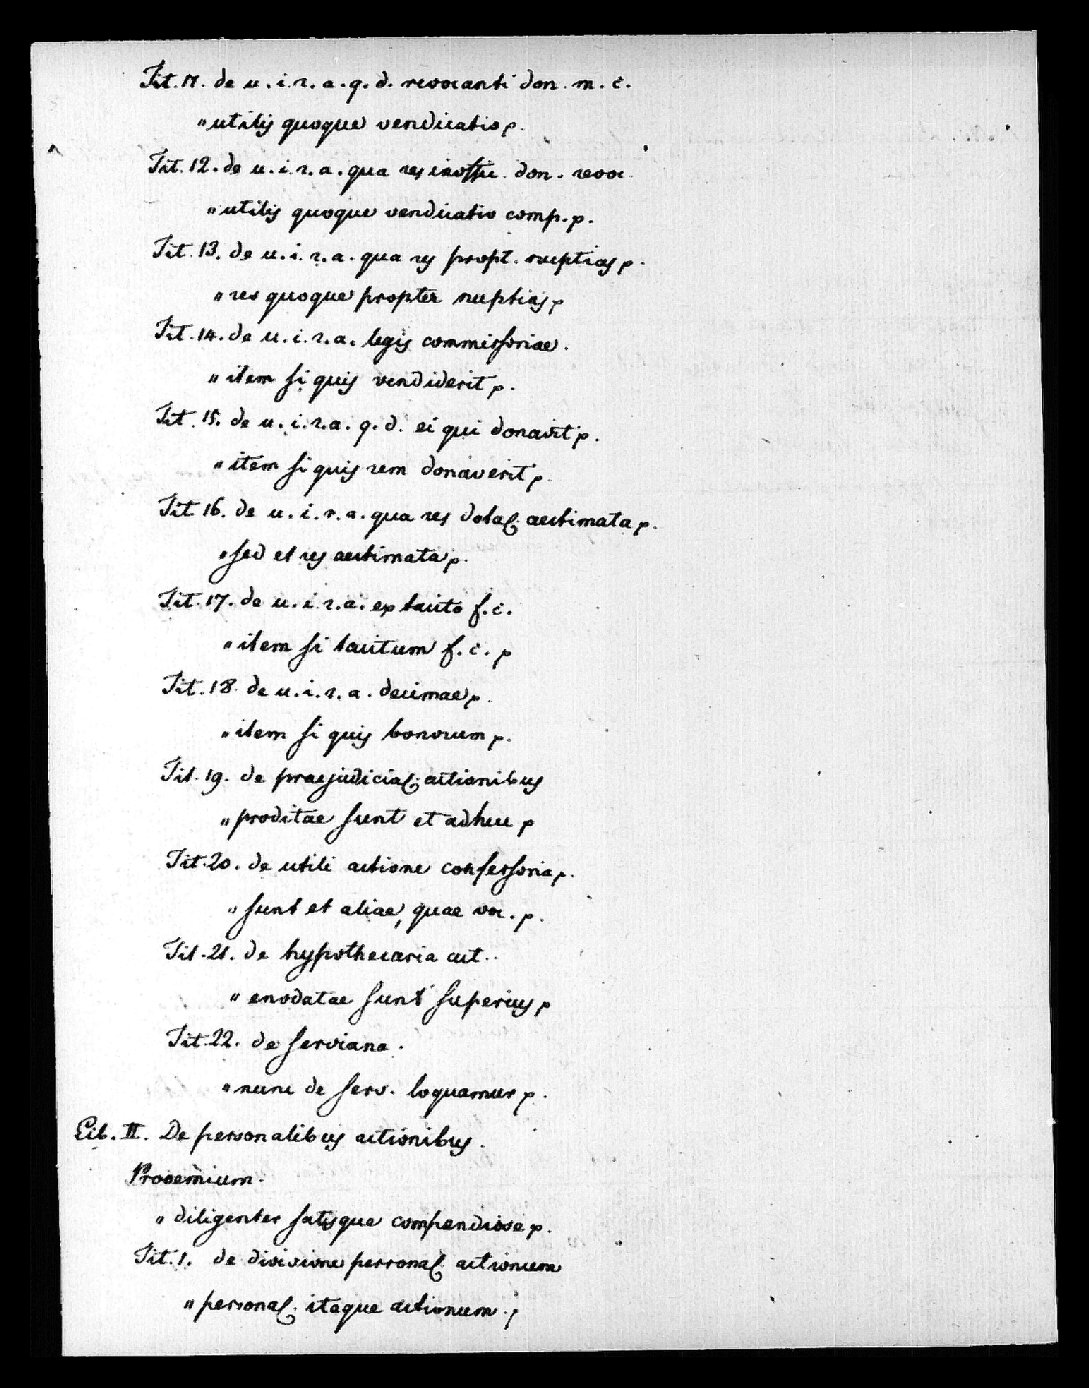 Tit. 11. de u. i. r. a. q. d. revocanti don. m. c.
„ utilis quoque vendicatio p.
Tit. 12. de u. i. r. a. qua res don. revoc.
„ utilis quoque vendicatio comp. p.
Tit. 13. de u. i. r. a. qua res propt. nuptias p.
„ res quoque propter nuptias p
Tit. 14. de u. i. r. a. legis commissoriae.
„ item si quis vendiderit p.
Tit. 15. de u. i. r. a. q. d. ei qui donavit p.
„ item si quis rem donaverit p.
Tit. 16. de u. i. r. a. qua res dotal. aestimata p.
„ sed et res aestimata p.
Tit. 17. de u. i. r. a. ex tacito f. c.
„ item si tacitum f. c. p
Tit. 18. de u. i. r. a. decimae p.
„ item si quis bonorum p.
Tit. 19. de praejudicial. actionibus
„ proditae sunt et adhuc p
Tit. 20. de utili actione confessoria p.
„ sunt et aliae, quae voc. p.
Tit. 21. de hypothecaria act.
„ enodatae sunt superius p
Tit. 22. de serviana.
„ nunc de serv. loquamur p.
Lib. II. De personalibus actionibus.
Prooemium.
„ diligenter satisque compendiose p.
Tit. 1. de divisione personal. actionum
„ personal. itaque actionum. p